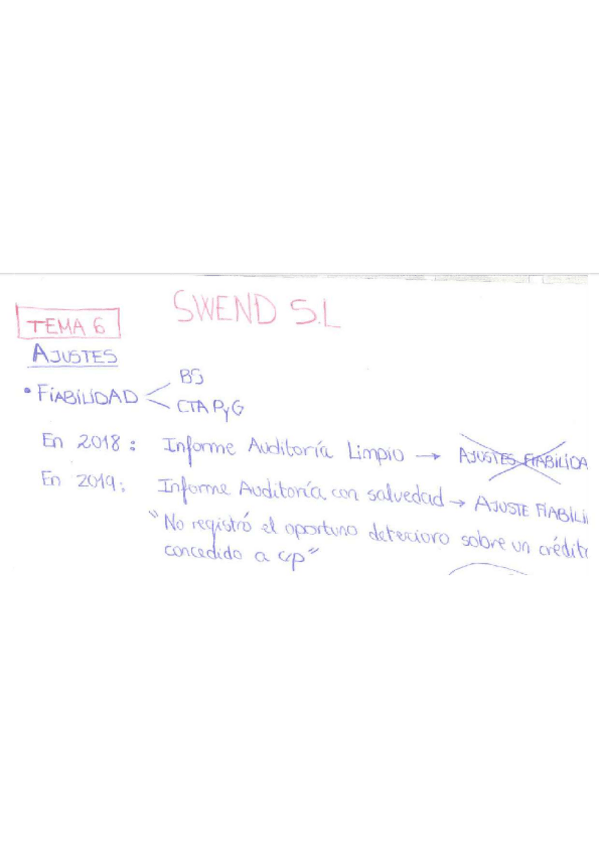 SWEND S.L
TEMA 6
AJUSTES
• FIABILIDAD
BS
CTA PyG
En 2018: Informe Auditoría Limpio → AJUSTES FIABILIDA
En 2019: Informe Auditoría con salvedad → AJUSTE FIABILI
"No registró el oportuno deterioro sobre un crédit
concedido a c/p"